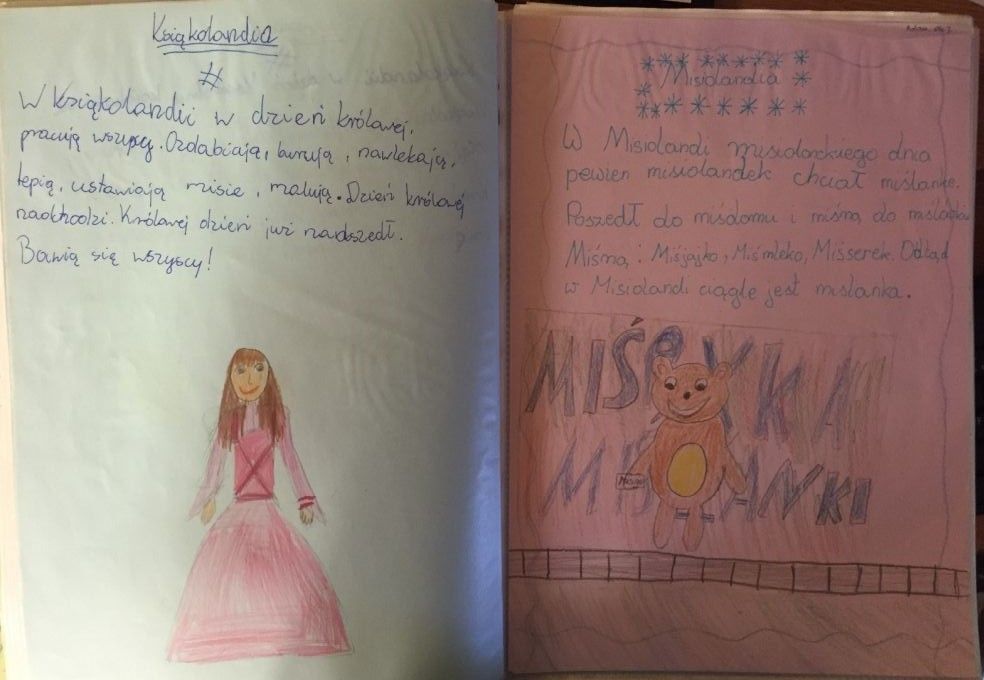 Książkolandia
#
W Książkolandii w dzień królowej,
pracują wszyscy. Ozdabiają, , nawlekają,
lepią, ustawiają misie, malują. Dzień królowej
nadchodzi. Królowej dzień już nadszedł.
Bawią się wszyscy!
Misiolandia
W Misiolandi misiolandzkiego dnia
pewien misiolandek chciał miślankę.
Poszedł do miśdomu i miśną do
Miśmą i Miśjajko, Miśmleko, Miśserek. Odtąd
w Misiolandi ciągle jest miślanka.
MIŚ KA
MIŚ ANKI